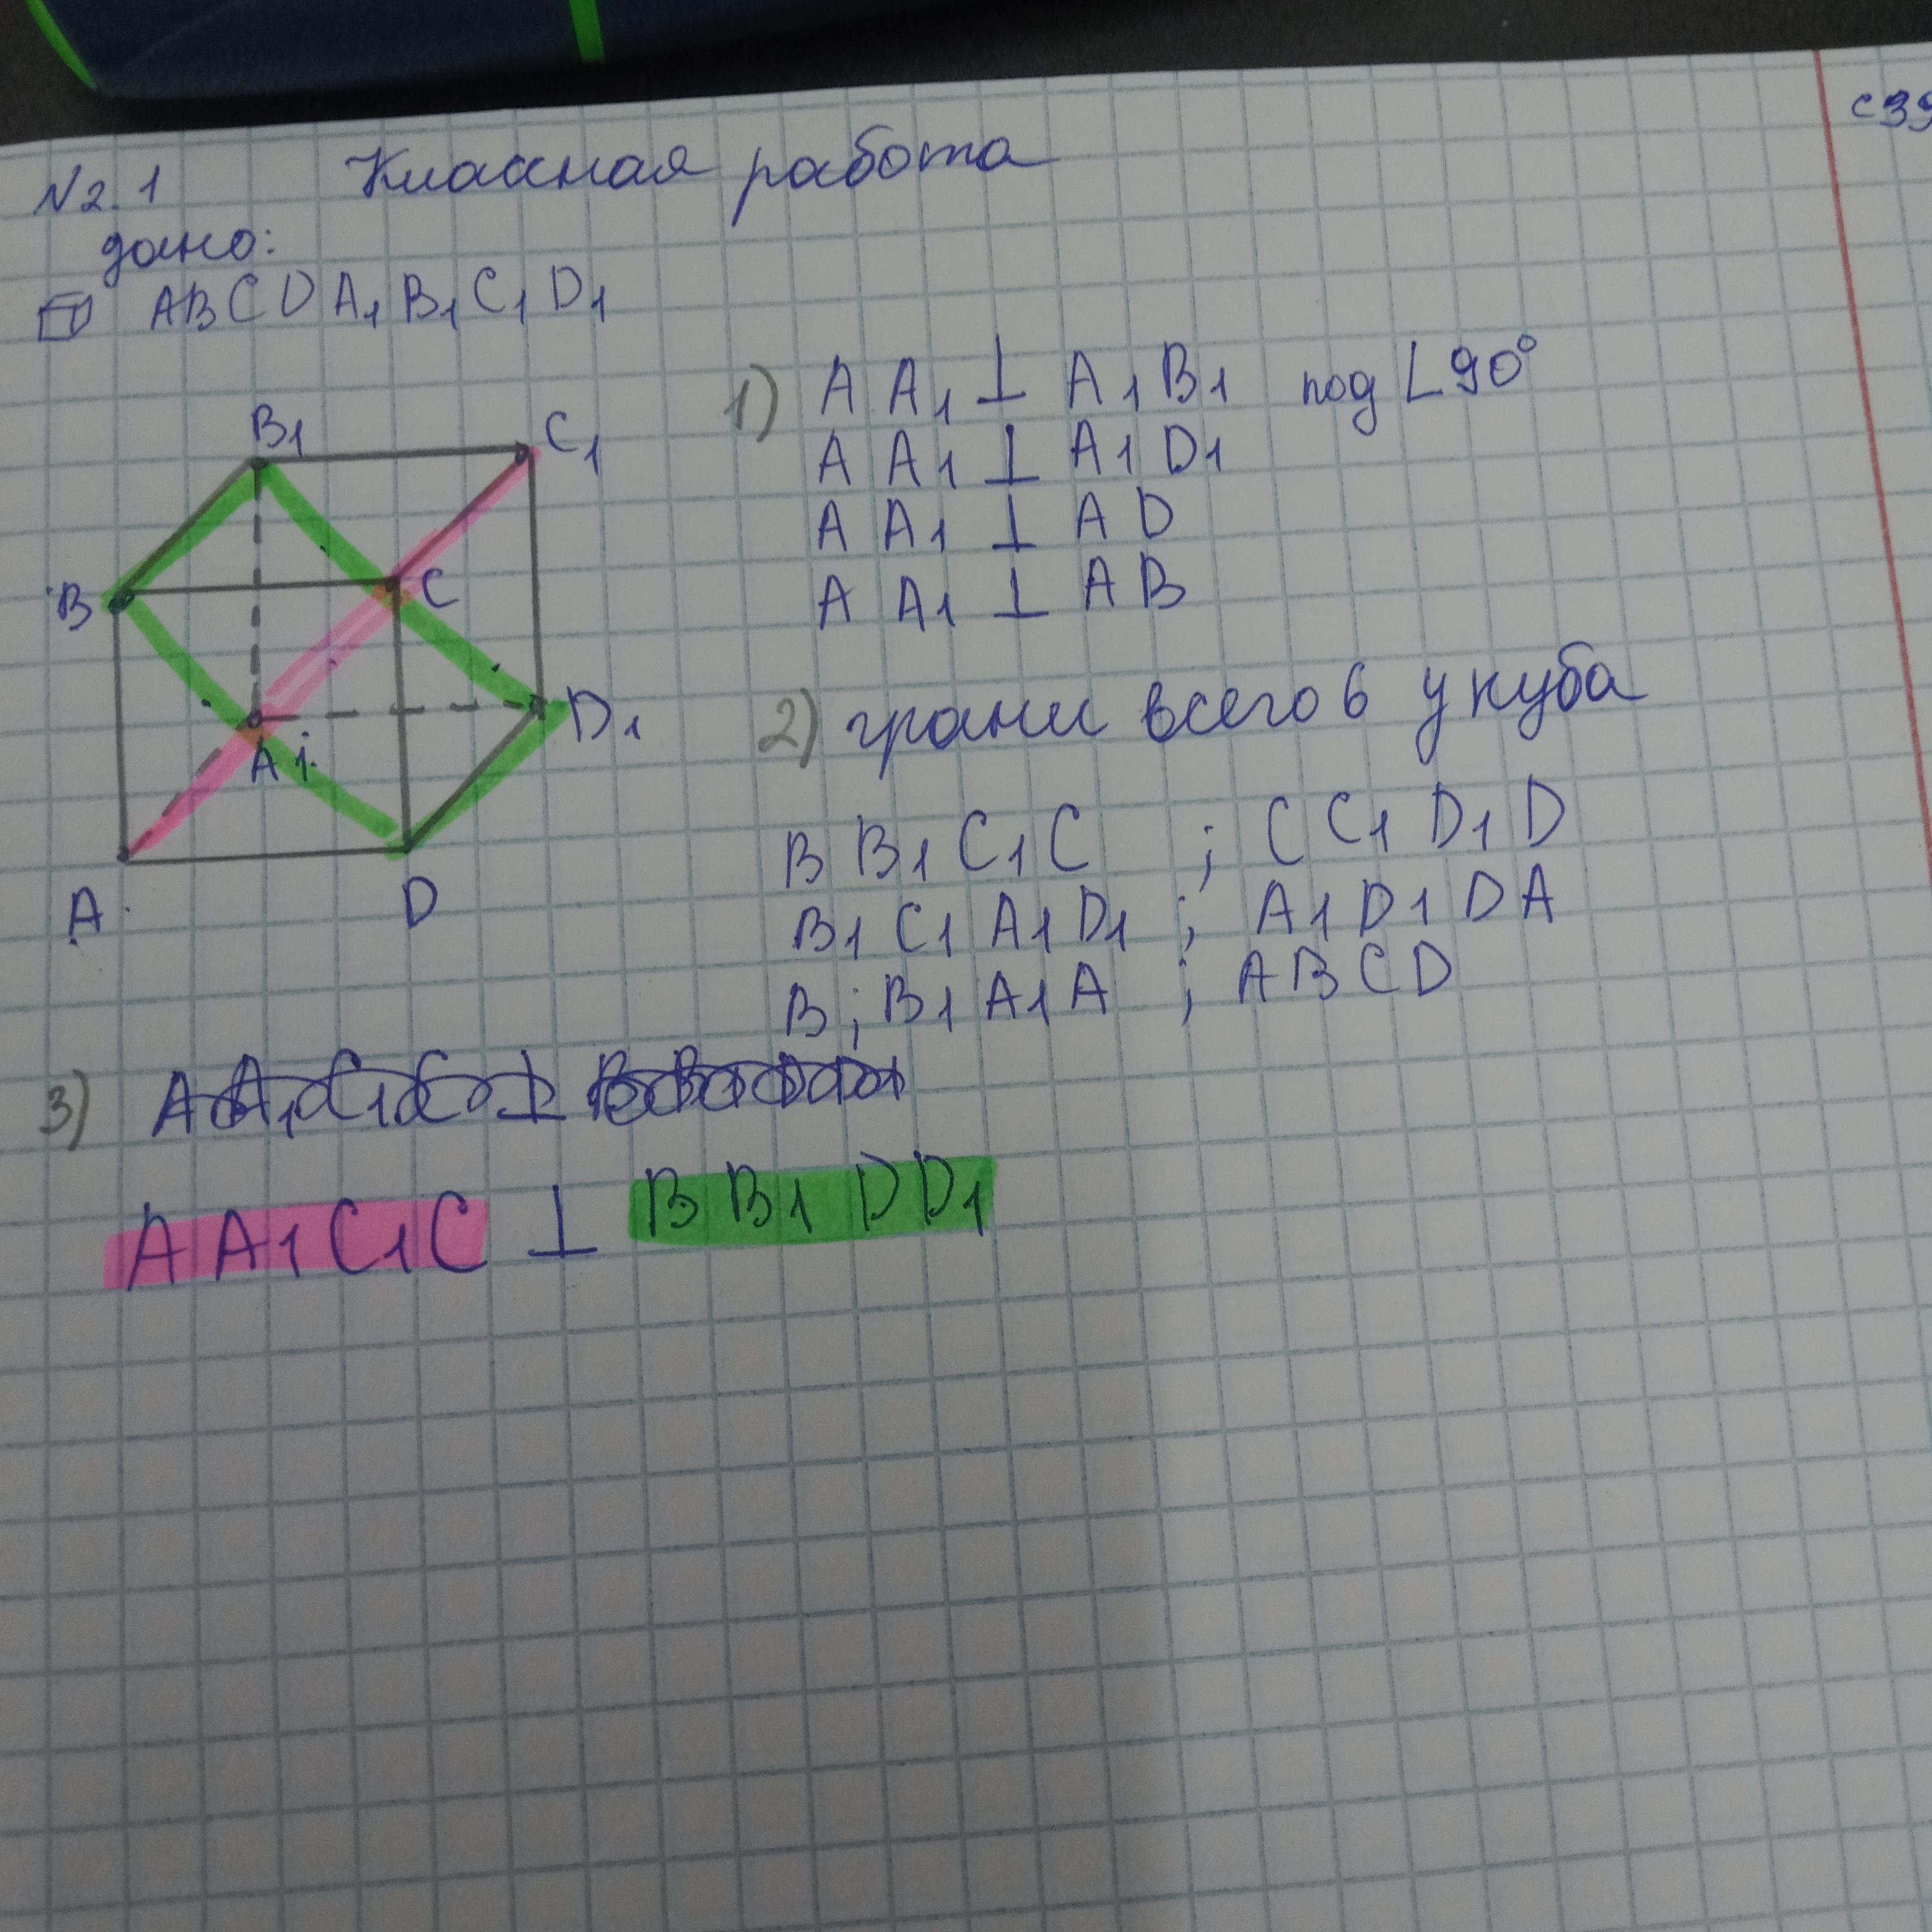 с39
N2.1 Классная работа
дано:
ABCDA₁B₁C₁D₁
B₁
C₁
B
C
A₁
D₁
A
D
1) AA₁ ⊥ A₁B₁ под ∟90°
AA₁ ⊥ A₁D₁
AA₁ ⊥ AD
AA₁ ⊥ AB
2) грани всего 6 у куба
BB₁C₁C ; CC₁D₁D
B₁C₁A₁D₁ ; A₁D₁DA
B;B₁A₁A ; ABCD
3) AA₁C₁C ⊥
AA₁C₁C ⊥ BB₁DD₁